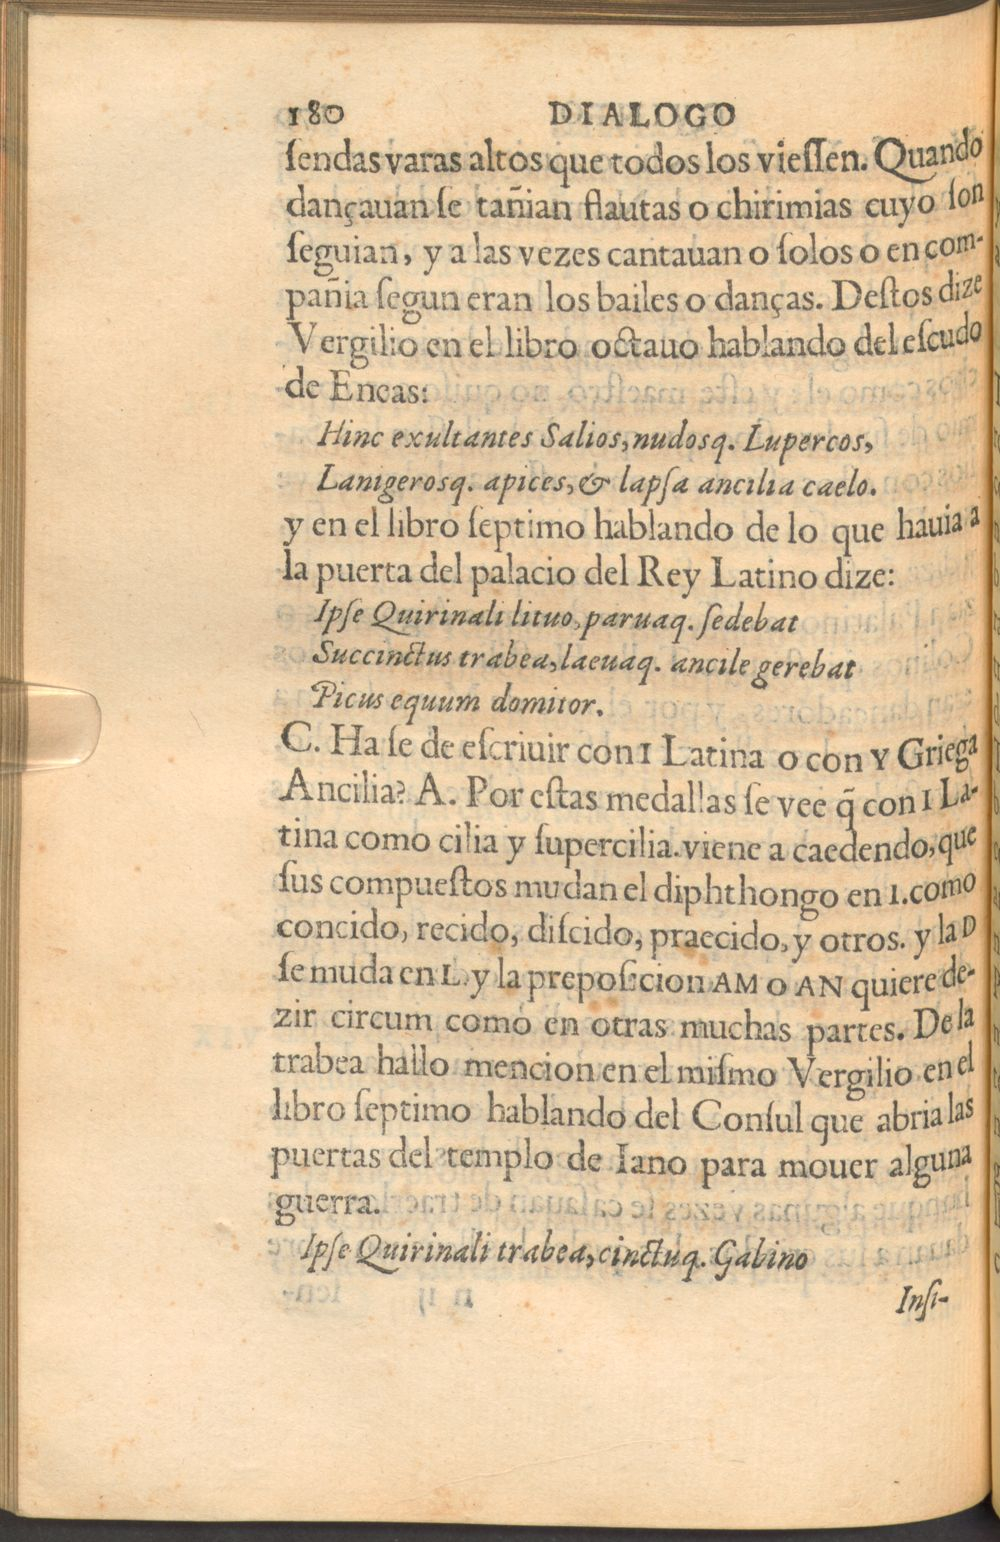 180 DIALOGO
ſendas varas altos que todos los vieſſen. Quando
dançauan ſe tañian flautas o chirimias cuyo ſon
ſeguian, y a las vezes cantauan o ſolos o en com-
pañia ſegun eran los bailes o danças. Deſtos dize
Vergilio en el libro octauo hablando del eſcudo
de Eneas:
Hinc exultantes Salios, nudosq. Lupercos,
Lanigerosq. apices, & lapſa ancilia caelo.
y en el libro ſeptimo hablando de lo que hauia a
la puerta del palacio del Rey Latino dize:
Ipſe Quirinali lituo, paruaq. ſedebat
Succinctus trabea, laeuaq. ancile gerebat
Picus equum domitor.
C. Ha ſe de eſcriuir con I Latina o con Y Griega
Ancilia? A. Por eſtas medallas ſe vee q̃ con I La-
tina como cilia y ſupercilia. viene a caedendo, que
ſus compueſtos mudan el diphthongo en I. como
concido, recido, diſcido, praecido, y otros. y la D
ſe muda en L. y la prepoſicion AM o AN quiere de-
zir circum como en otras muchas partes. De la
trabea hallo mencion en el miſmo Vergilio en el
libro ſeptimo hablando del Conſul que abria las
puertas del templo de Iano para mouer alguna
guerra.
Ipſe Quirinali trabea, cinctuq. Gabino
Inſi-